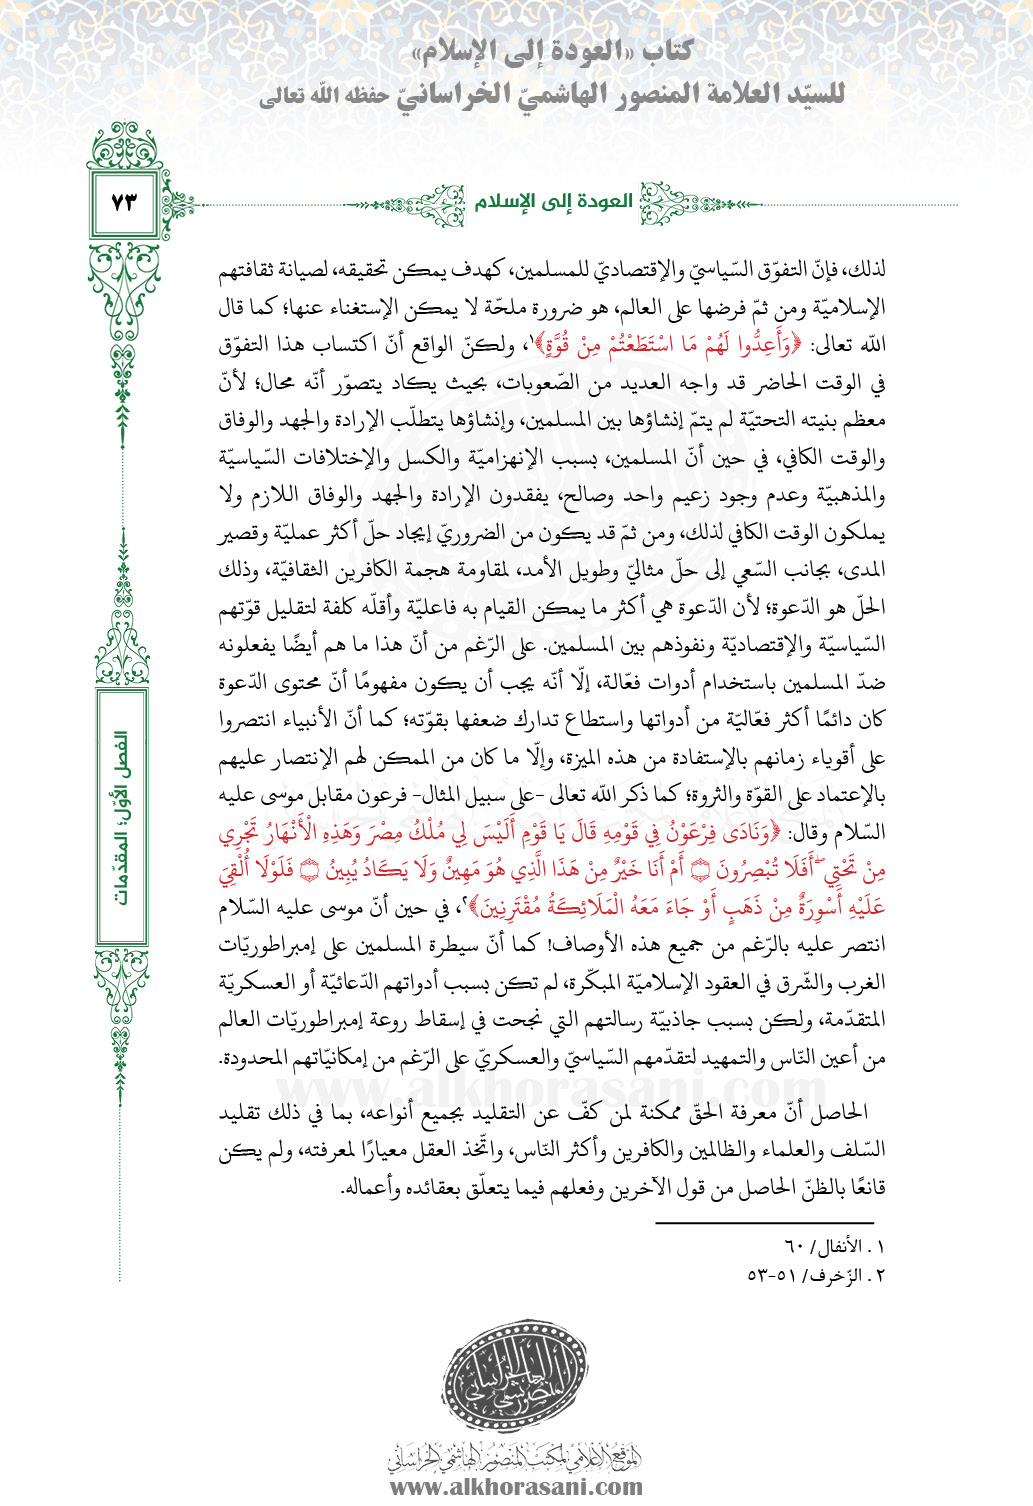 كتاب «العودة إلى الإسلام»
للسيّد العلامة المنصور الهاشميّ الخراسانيّ حفظه اللّه تعالى
٧٣
العودة إلى الإسلام
لذلك، فإنّ التفوّق السّياسيّ والإقتصاديّ للمسلمين، كهدف يمكن تحقيقه، لصيانة ثقافتهم
الإسلاميّة ومن ثمّ فرضها على العالم، هو ضرورة ملحّة لا يمكن الإستغناء عنها؛ كما قال
اللّه تعالى: ﴿وَأَعِدُّوا لَهُمْ مَا اسْتَطَعْتُمْ مِنْ قُوَّةٍ﴾١، ولكنّ الواقع أنّ اكتساب هذا التفوّق
في الوقت الحاضر قد واجه العديد من الصّعوبات، بحيث يكاد يتصوّر أنّه محال؛ لأنّ
معظم بنيته التحتيّة لم يتمّ إنشاؤها بين المسلمين، وإنشاؤها يتطلّب الإرادة والجهد والوفاق
والوقت الكافي، في حين أنّ المسلمين، بسبب الإنهزاميّة والكسل والإختلافات السّياسيّة
والمذهبيّة وعدم وجود زعيم واحد وصالح، يفقدون الإرادة والجهد والوفاق اللازم ولا
يملكون الوقت الكافي لذلك، ومن ثمّ قد يكون من الضروريّ إيجاد حلّ أكثر عمليّة وقصير
المدى، بجانب السّعي إلى حلّ مثاليّ وطويل الأمد، لمقاومة هجمة الكافرين الثقافيّة، وذلك
الحلّ هو الدّعوة؛ لأن الدّعوة هي أكثر ما يمكن القيام به فاعليّة وأقلّه كلفة لتقليل قوّتهم
السّياسيّة والإقتصاديّة ونفوذهم بين المسلمين. على الرّغم من أنّ هذا ما هم أيضًا يفعلونه
ضدّ المسلمين باستخدام أدوات فعّالة، إلّا أنّه يجب أن يكون مفهومًا أنّ محتوى الدّعوة
كان دائمًا أكثر فعّاليّة من أدواتها واستطاع تدارك ضعفها بقوّته؛ كما أنّ الأنبياء انتصروا
على أقوياء زمانهم بالإستفادة من هذه الميزة، وإلّا ما كان من الممكن لهم الإنتصار عليهم
بالإعتماد على القوّة والثروة؛ كما ذكر اللّه تعالى -على سبيل المثال- فرعون مقابل موسى عليه
السّلام وقال: ﴿وَنَادَى فِرْعَوْنُ فِي قَوْمِهِ قَالَ يَا قَوْمِ أَلَيْسَ لِي مُلْكُ مِصْرَ وَهَذِهِ الْأَنْهَارُ تَجْرِي
مِنْ تَحْتِي ۖ أَفَلَا تُبْصِرُونَ ۝ أَمْ أَنَا خَيْرٌ مِنْ هَذَا الَّذِي هُوَ مَهِينٌ وَلَا يَكَادُ يُبِينُ ۝ فَلَوْلَا أُلْقِيَ
عَلَيْهِ أَسْوِرَةٌ مِنْ ذَهَبٍ أَوْ جَاءَ مَعَهُ الْمَلَائِكَةُ مُقْتَرِنِينَ﴾٢، في حين أنّ موسى عليه السّلام
انتصر عليه بالرّغم من جميع هذه الأوصاف! كما أنّ سيطرة المسلمين على إمبراطوريّات
الغرب والشّرق في العقود الإسلاميّة المبكّرة، لم تكن بسبب أدواتهم الدّعائيّة أو العسكريّة
المتقدّمة، ولكن بسبب جاذبيّة رسالتهم التي نجحت في إسقاط روعة إمبراطوريّات العالم
من أعين النّاس والتمهيد لتقدّمهم السّياسيّ والعسكريّ على الرّغم من إمكانيّاتهم المحدودة.
الحاصل أنّ معرفة الحقّ ممكنة لمن كفّ عن التقليد بجميع أنواعه، بما في ذلك تقليد
السّلف والعلماء والظالمين والكافرين وأكثر النّاس، واتّخذ العقل معيارًا لمعرفته، ولم يكن
قانعًا بالظنّ الحاصل من قول الآخرين وفعلهم فيما يتعلّق بعقائده وأعماله.
١ . الأنفال/ ٦٠
٢ . الزّخرف/ ٥١-٥٣
الفصل الأوّل؛ المقدّمات
www.alkhorasani.com
المنصور الهاشمي الخراساني
الموقع الإعلامي لمكتب المنصور الهاشمي الخراساني
www.alkhorasani.com